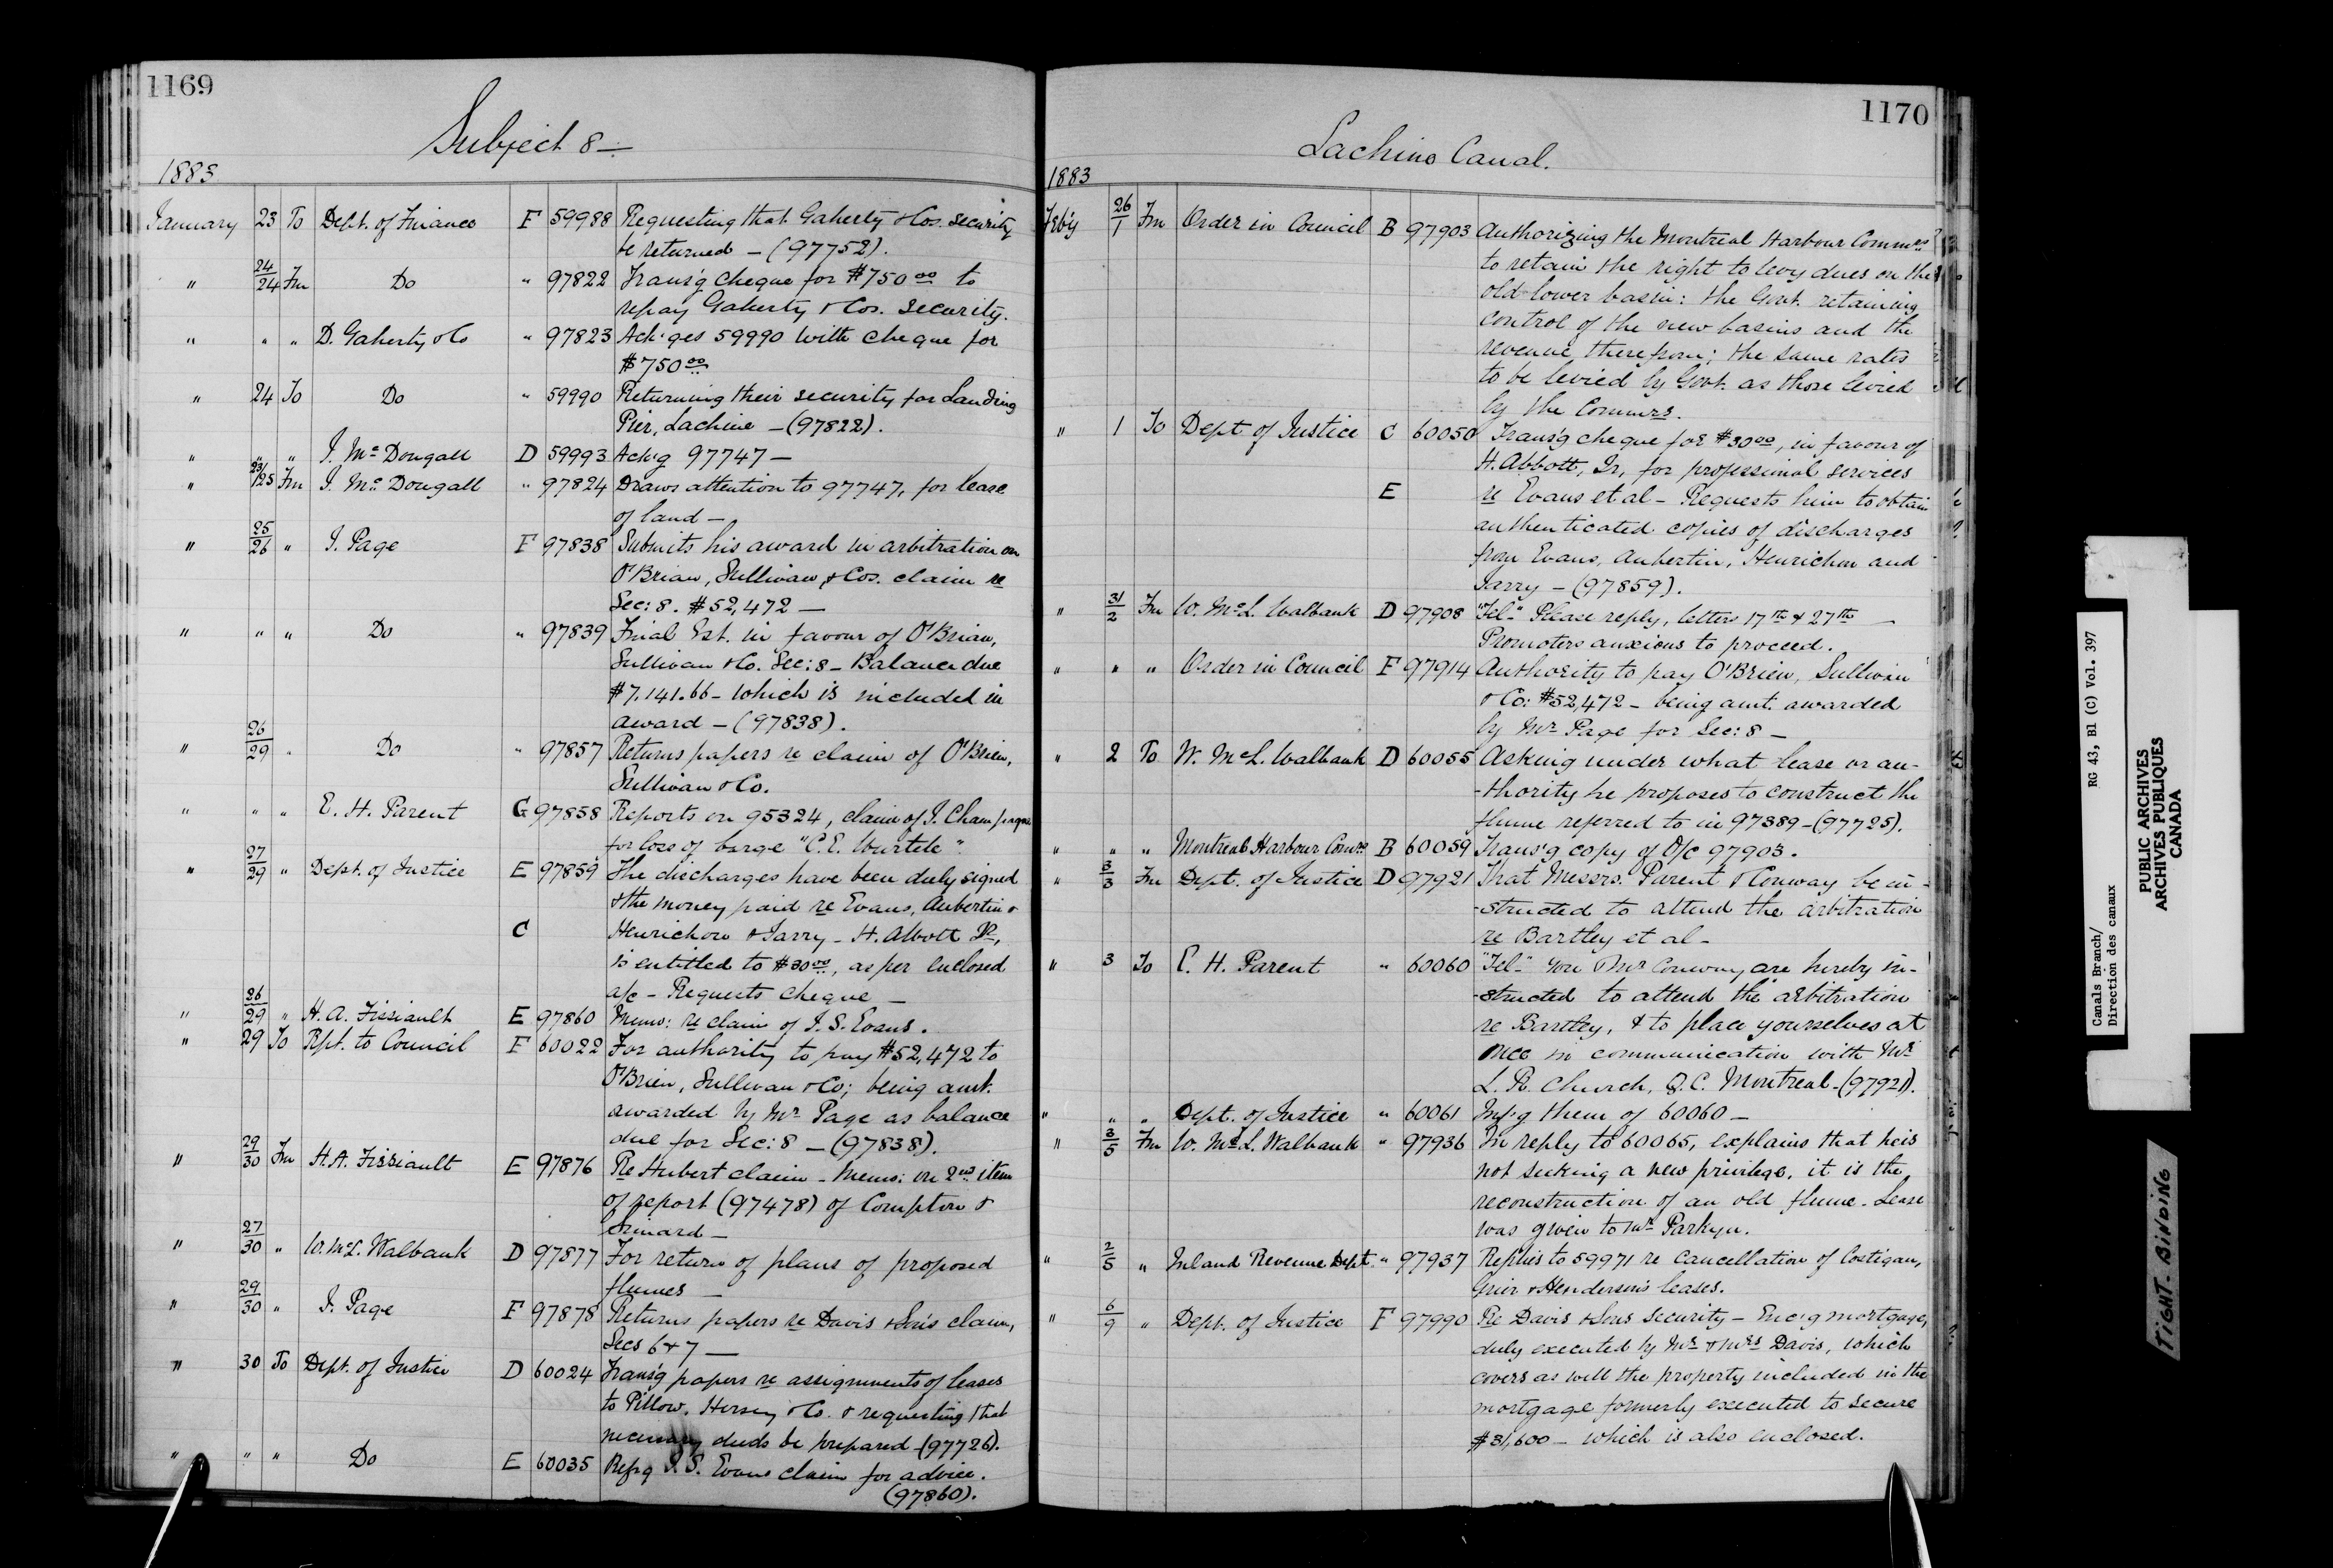 1169
Subject 8 —
1883
January 23 To Dept. of Finance F 59988 Requesting that Gaherty & Cos. security
be returned — (97752).
" 24/24 Fm Do " 97822 Trans'g cheque for $750.00 to
repay Gaherty & Cos. security.
" " " D. Gaherty & Co " 97823 Ack'ges 59990 with cheque for
$750.00
" 24 To Do " 59990 Returning their security for Landing
Pier, Lachine — (97822).
" " " J. McDougall D 59993 Ack'g 97747 —
" 23/25 Fm J. McDougall " 97824 Draws attention to 97747, for lease
of land —
" 25/26 " J. Page F 97838 Submits his award in arbitration on
O'Brian, Sullivan & Cos. claim re
Sec: 8. $52,472 —
" " " Do " 97839 Final Est. in favour of O'Brian,
Sullivan & Co. Sec: 8 — Balance due
$7,141.66 — which is included in
award — (97838).
" 26/29 " Do " 97857 Returns papers re claim of O'Brien,
Sullivan & Co.
" " " E. H. Parent G 97858 Reports on 95324, claim of J. Champagne
for loss of barge "C. E. Wurtele".
" 27/29 " Dept. of Justice E 97859 The discharges have been duly signed
& the money paid re Evans, Aubertin &
C Henrichon & Jarry — H. Abbott Jr.,
is entitled to $30.00, as per enclosed
a/c — Requests cheque —
" 26/29 " H. A. Fissiault E 97860 Memo: re claim of J. S. Evans.
" 29 To Rpt. to Council F 60022 For authority to pay $52,472 to
O'Brien, Sullivan & Co; being amt.
awarded by Mr Page as balance
due for Sec: 8 — (97838).
" 29/30 Fm H. A. Fissiault E 97876 Re Hubert claim — Memo: on 2nd item
of report (97478) of Compton &
Simard —
" 27/30 " W. McL. Walbank D 97877 For return of plans of proposed
flumes —
" 29/30 " J. Page F 97878 Returns papers re Davis & Sons claim,
Secs 6 & 7 —
" 30 To Dept. of Justice D 60024 Trans'g papers re assignments of leases
to Pillow, Hersey & Co. & requesting that
necessary deeds be prepared — (97726).
" " " Do E 60035 Ref'g J. S. Evans claim for advice.
(97860).
1170
Lachine Canal.
1883
Feb'y 26/1 Fm Order in Council B 97903 Authorizing the Montreal Harbour Commrs
to retain the right to levy dues on the
old lower basin: the Govt. retaining
control of the new basins and the
revenue therefrom; the same rates
to be levied by Govt. as those levied
by the Commrs.
" 1 To Dept of Justice C 60050 Trans'g cheque for $30.00, in favour of
H. Abbott, Jr, for professional services
E re Evans et al — Requests him to obtain
authenticated copies of discharges
from Evans, Aubertin, Henrichon and
Jarry — (97859).
" 31/2 Fm W. McL. Walbank D 97908 "Tel." Please reply, letters 17th & 27th —
Promoters anxious to proceed.
" " " Order in Council F 97914 Authority to pay O'Brien, Sullivan
& Co: $52,472 — being amt. awarded
by Mr Page for Sec: 8 —
" 2 To W. McL. Walbank D 60055 Asking under what lease or au-
-thority he proposes to construct the
flume referred to in 97389 — (97725).
" " " Montreal Harbour Comrs B 60059 Trans'g copy of O/c 97903.
" 3/3 Fm Dept. of Justice D 97921 That Messrs. Parent & Conway be in-
-structed to attend the arbitration
re Bartley et al —
" 3 To E. H. Parent " 60060 "Tel." You & Mr Conway are hereby in-
-structed to attend the arbitration
re Bartley, & to place yourselves at
once in communication with Mr
L. R. Church, Q.C. Montreal — (97921).
" " " Dept. of Justice " 60061 Inf'g them of 60060 —
" 3/5 Fm W. McL. Walbank " 97936 In reply to 60065, explains that he is
not seeking a new privilege, it is the
reconstruction of an old flume. Lease
was given to Mr Parkyn.
" 2/5 " Inland Revenue Dept " 97937 Replies to 59971 re cancellation of Costigan,
Grier & Henderson's leases.
" 6/9 " Dept. of Justice F 97990 Re Davis & Sons security — Enc'g mortgage,
duly executed by Mr & Mrs Davis, which
covers as well the property included in the
mortgage formerly executed to secure
$31,600 — which is also enclosed.
Canals Branch/ RG 43, B1 (C) Vol. 397
Direction des canaux
PUBLIC ARCHIVES
ARCHIVES PUBLIQUES
CANADA
TIGHT BINDING